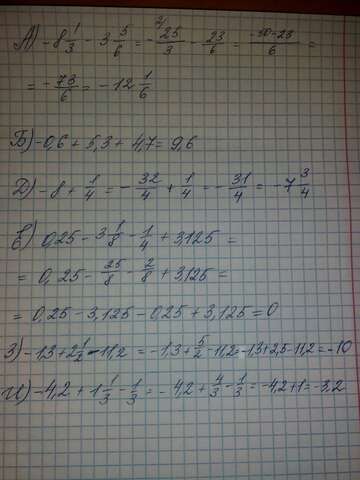 А) -8 1/3 - 3 5/6 = -25/3 - 23/6 = -50-23/6 =
= -73/6 = -12 1/6
Б) -0,6 + 5,3 + 4,7 = 9,6
Д) -8 + 1/4 = -32/4 + 1/4 = -31/4 = -7 3/4
Е) 0,25 - 3 1/8 - 1/4 + 3,125 =
= 0,25 - 25/8 - 2/8 + 3,125 =
= 0,25 - 3,125 - 0,25 + 3,125 = 0
З) -1,3 + 2 1/2 - 11,2 = -1,3 + 5/2 - 11,2 = -1,3 + 2,5 - 11,2 = -10
И) -4,2 + 1 1/3 - 1/3 = -4,2 + 4/3 - 1/3 = -4,2 + 1 = -3,2